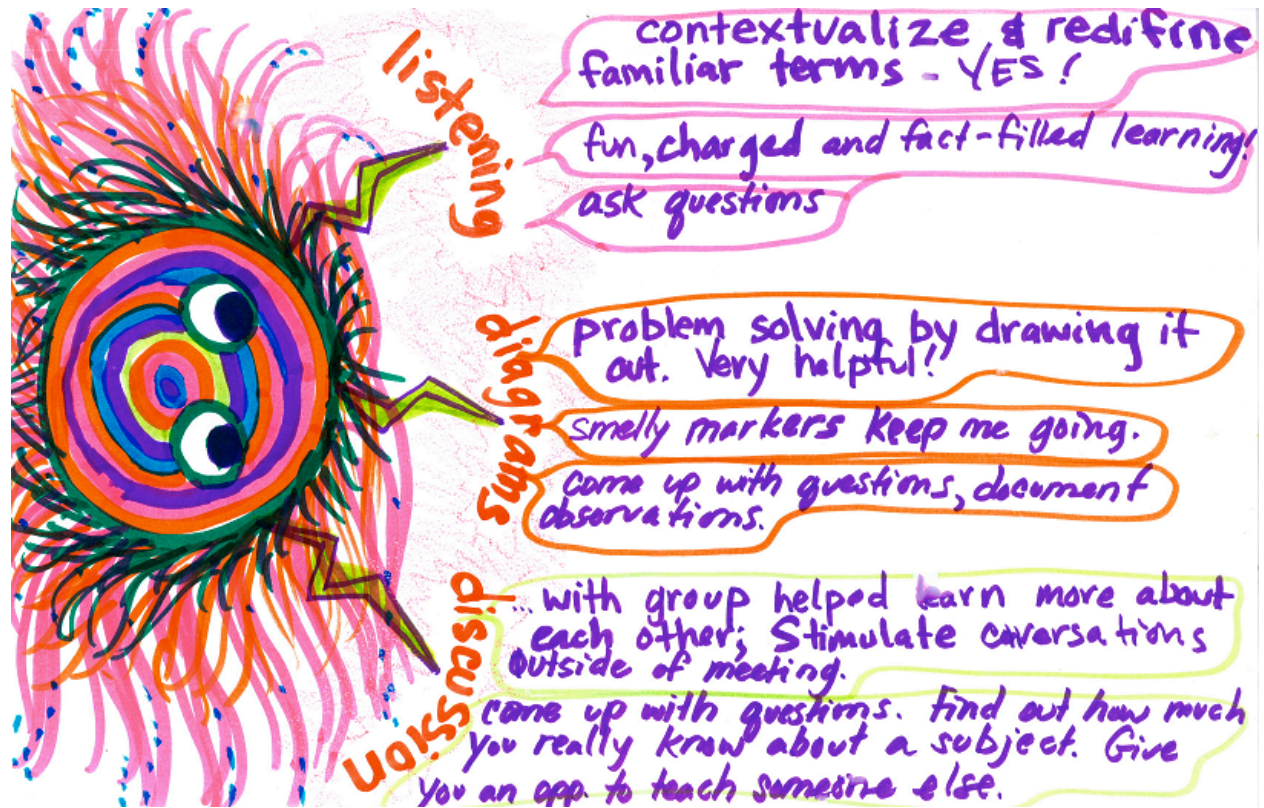 listening
contextualize & redifine
familiar terms - YES!
fun, charged and fact-filled learning!
ask questions
diagrams
problem solving by drawing it
out. Very helpful!
smelly markers keep me going.
come up with questions, document
observations.
discussion
... with group helped learn more about
each other; Stimulate coversations
outside of meeting.
come up with questions. Find out how much
you really know about a subject. Give
you an opp. to teach someone else.